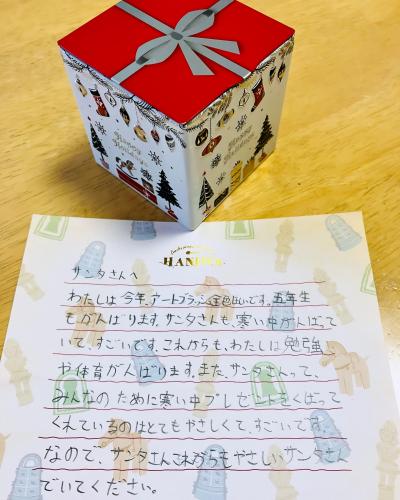 Happy
Holidays
Happy
Holidays
サンタさんへ
わたしは今年、アートブラシ いです。五年生
もがんばります。サンタさんも、寒い中がんばって
いて、すごいです。これからも、わたしは勉強
や体育がんばります。また、サンタさんって、
みんなのために寒い中プレゼントをくばって
くれているのはとてもやさしくて、すごいです。
なので、サンタさんこれからもやさしいサンタさん
でいてください。